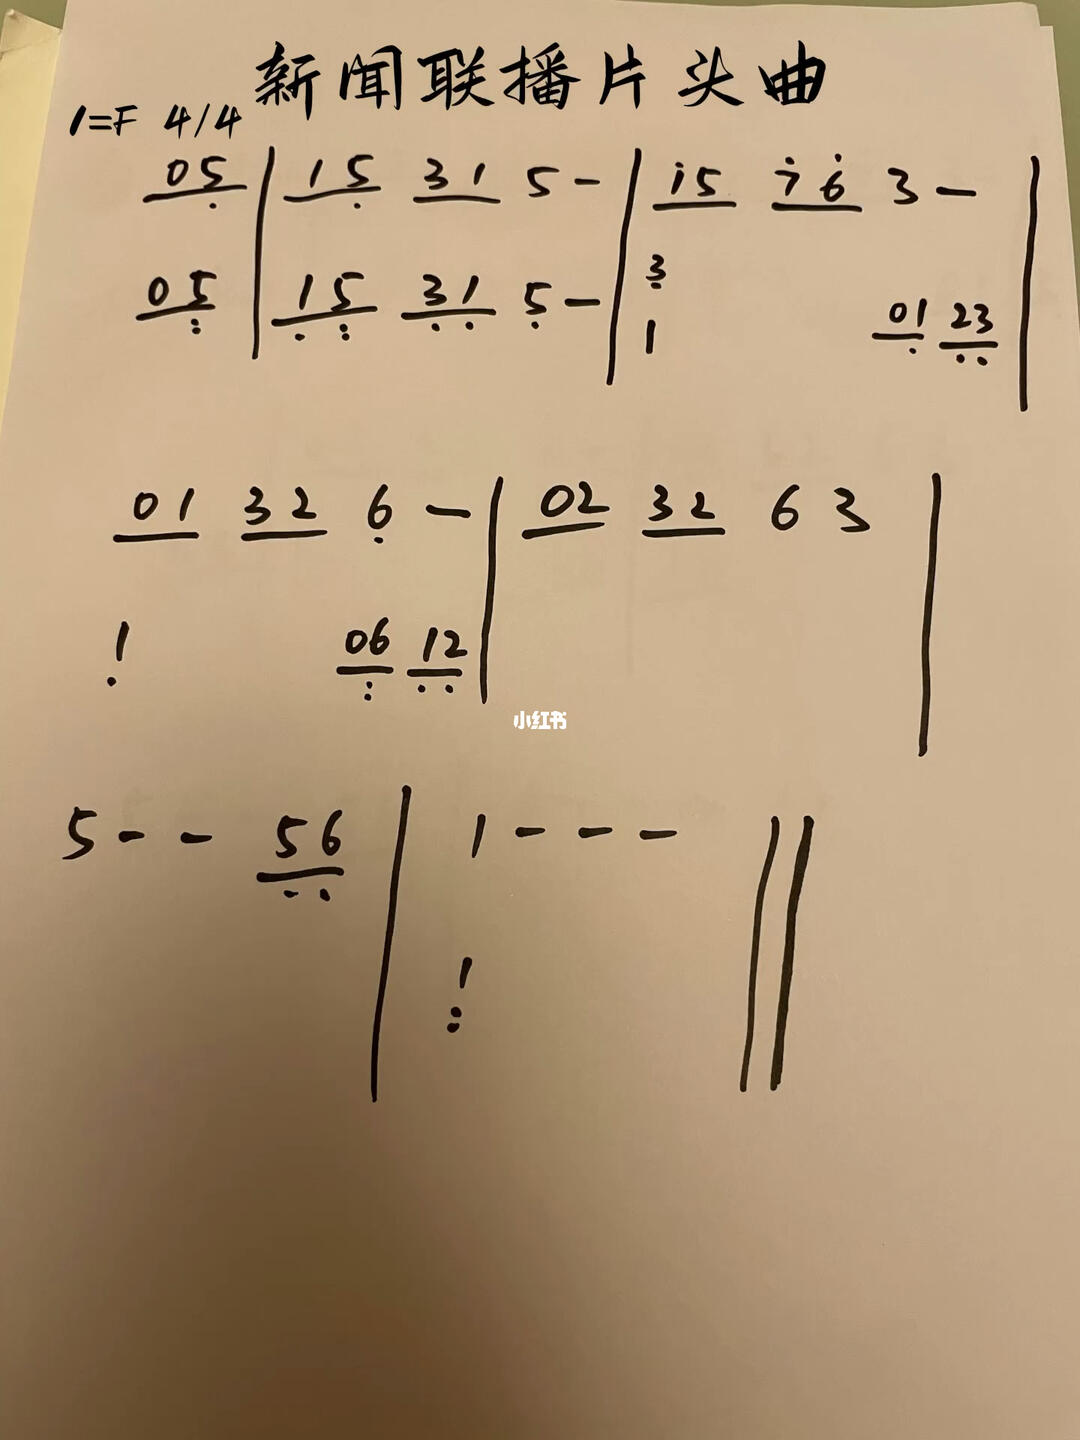 新闻联播片头曲
1=F 4/4
05 | 15 31 5 - | i5 7̇ 6̇ 3 - |
3
05 | 15 31 5 - | 1 01 23 |
01 32 6 - | 02 32 6 3 |
1 06 12 |
小红书
5 - - 56 | 1 - - - ||
1